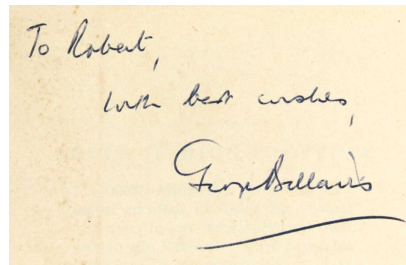 To Robert,
With best wishes,
George Bellairs